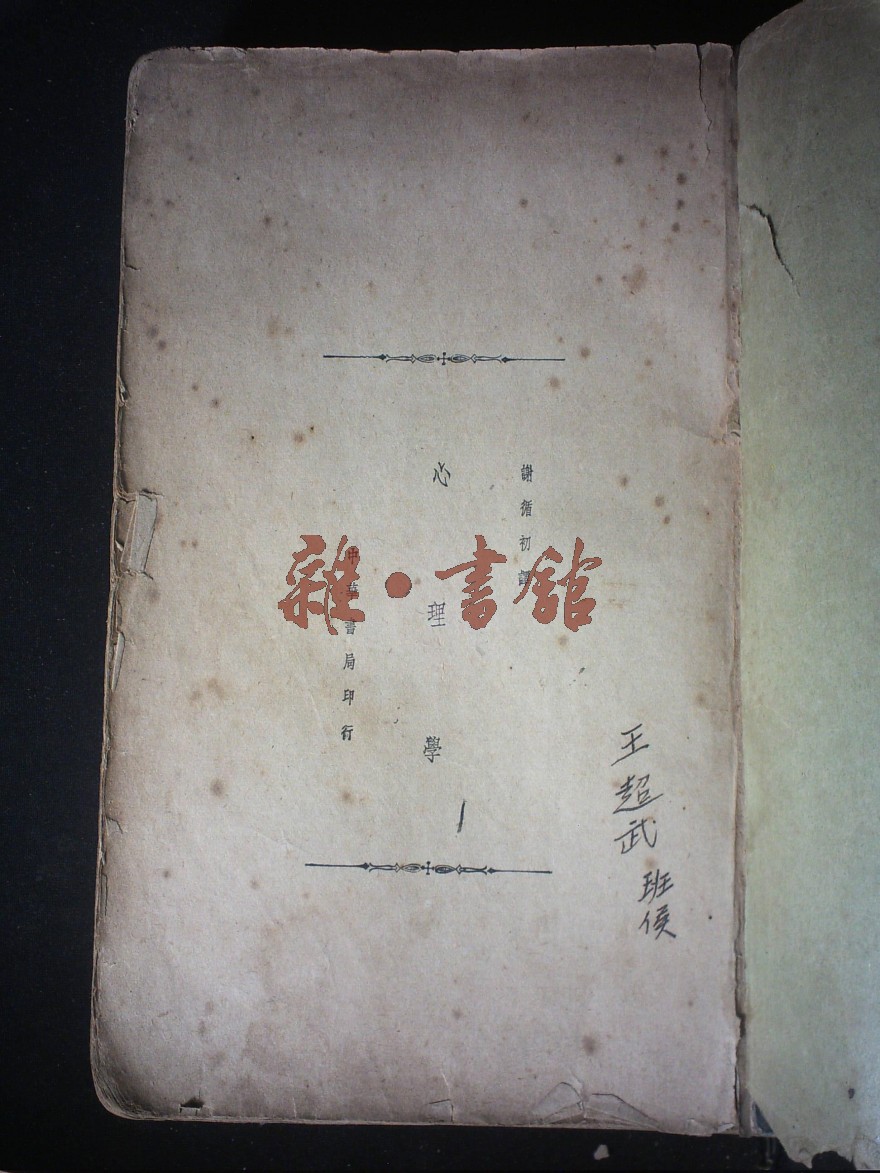 謝循初譯
心理學
中華書局印行
雜·書館
王超武
班侯